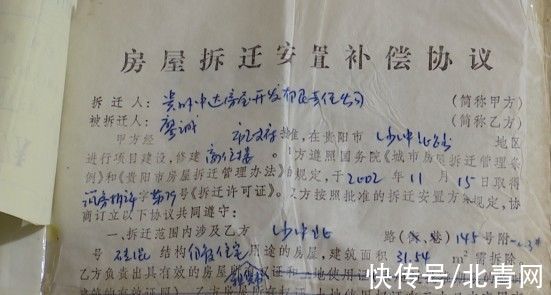 房屋拆迁安置补偿协议
拆迁人：贵州中达房屋开发有限责任公司（简称甲方）
被拆迁人：廖斌（简称乙方）
甲方经 市政府 批准，在贵阳市 沙冲北路 地区
进行项目建设，修建 商住楼 。甲方遵照国务院《城市房屋拆迁管理条
例》和《贵阳市房屋拆迁管理办法》的规定，于2002年11月15日取得
字第 号《拆迁许可证》。双方按照批准的拆迁安置方案规定，协
商订立以下协议共同遵守：
一、拆迁范围内涉及乙方 沙冲北 路（ 巷）145号附
号 砖混 结构 住宅 用途的房屋，建筑面积 31.54 m²需拆除
乙方负责出具有效的房屋 证和 地使用证
快传号/北青网